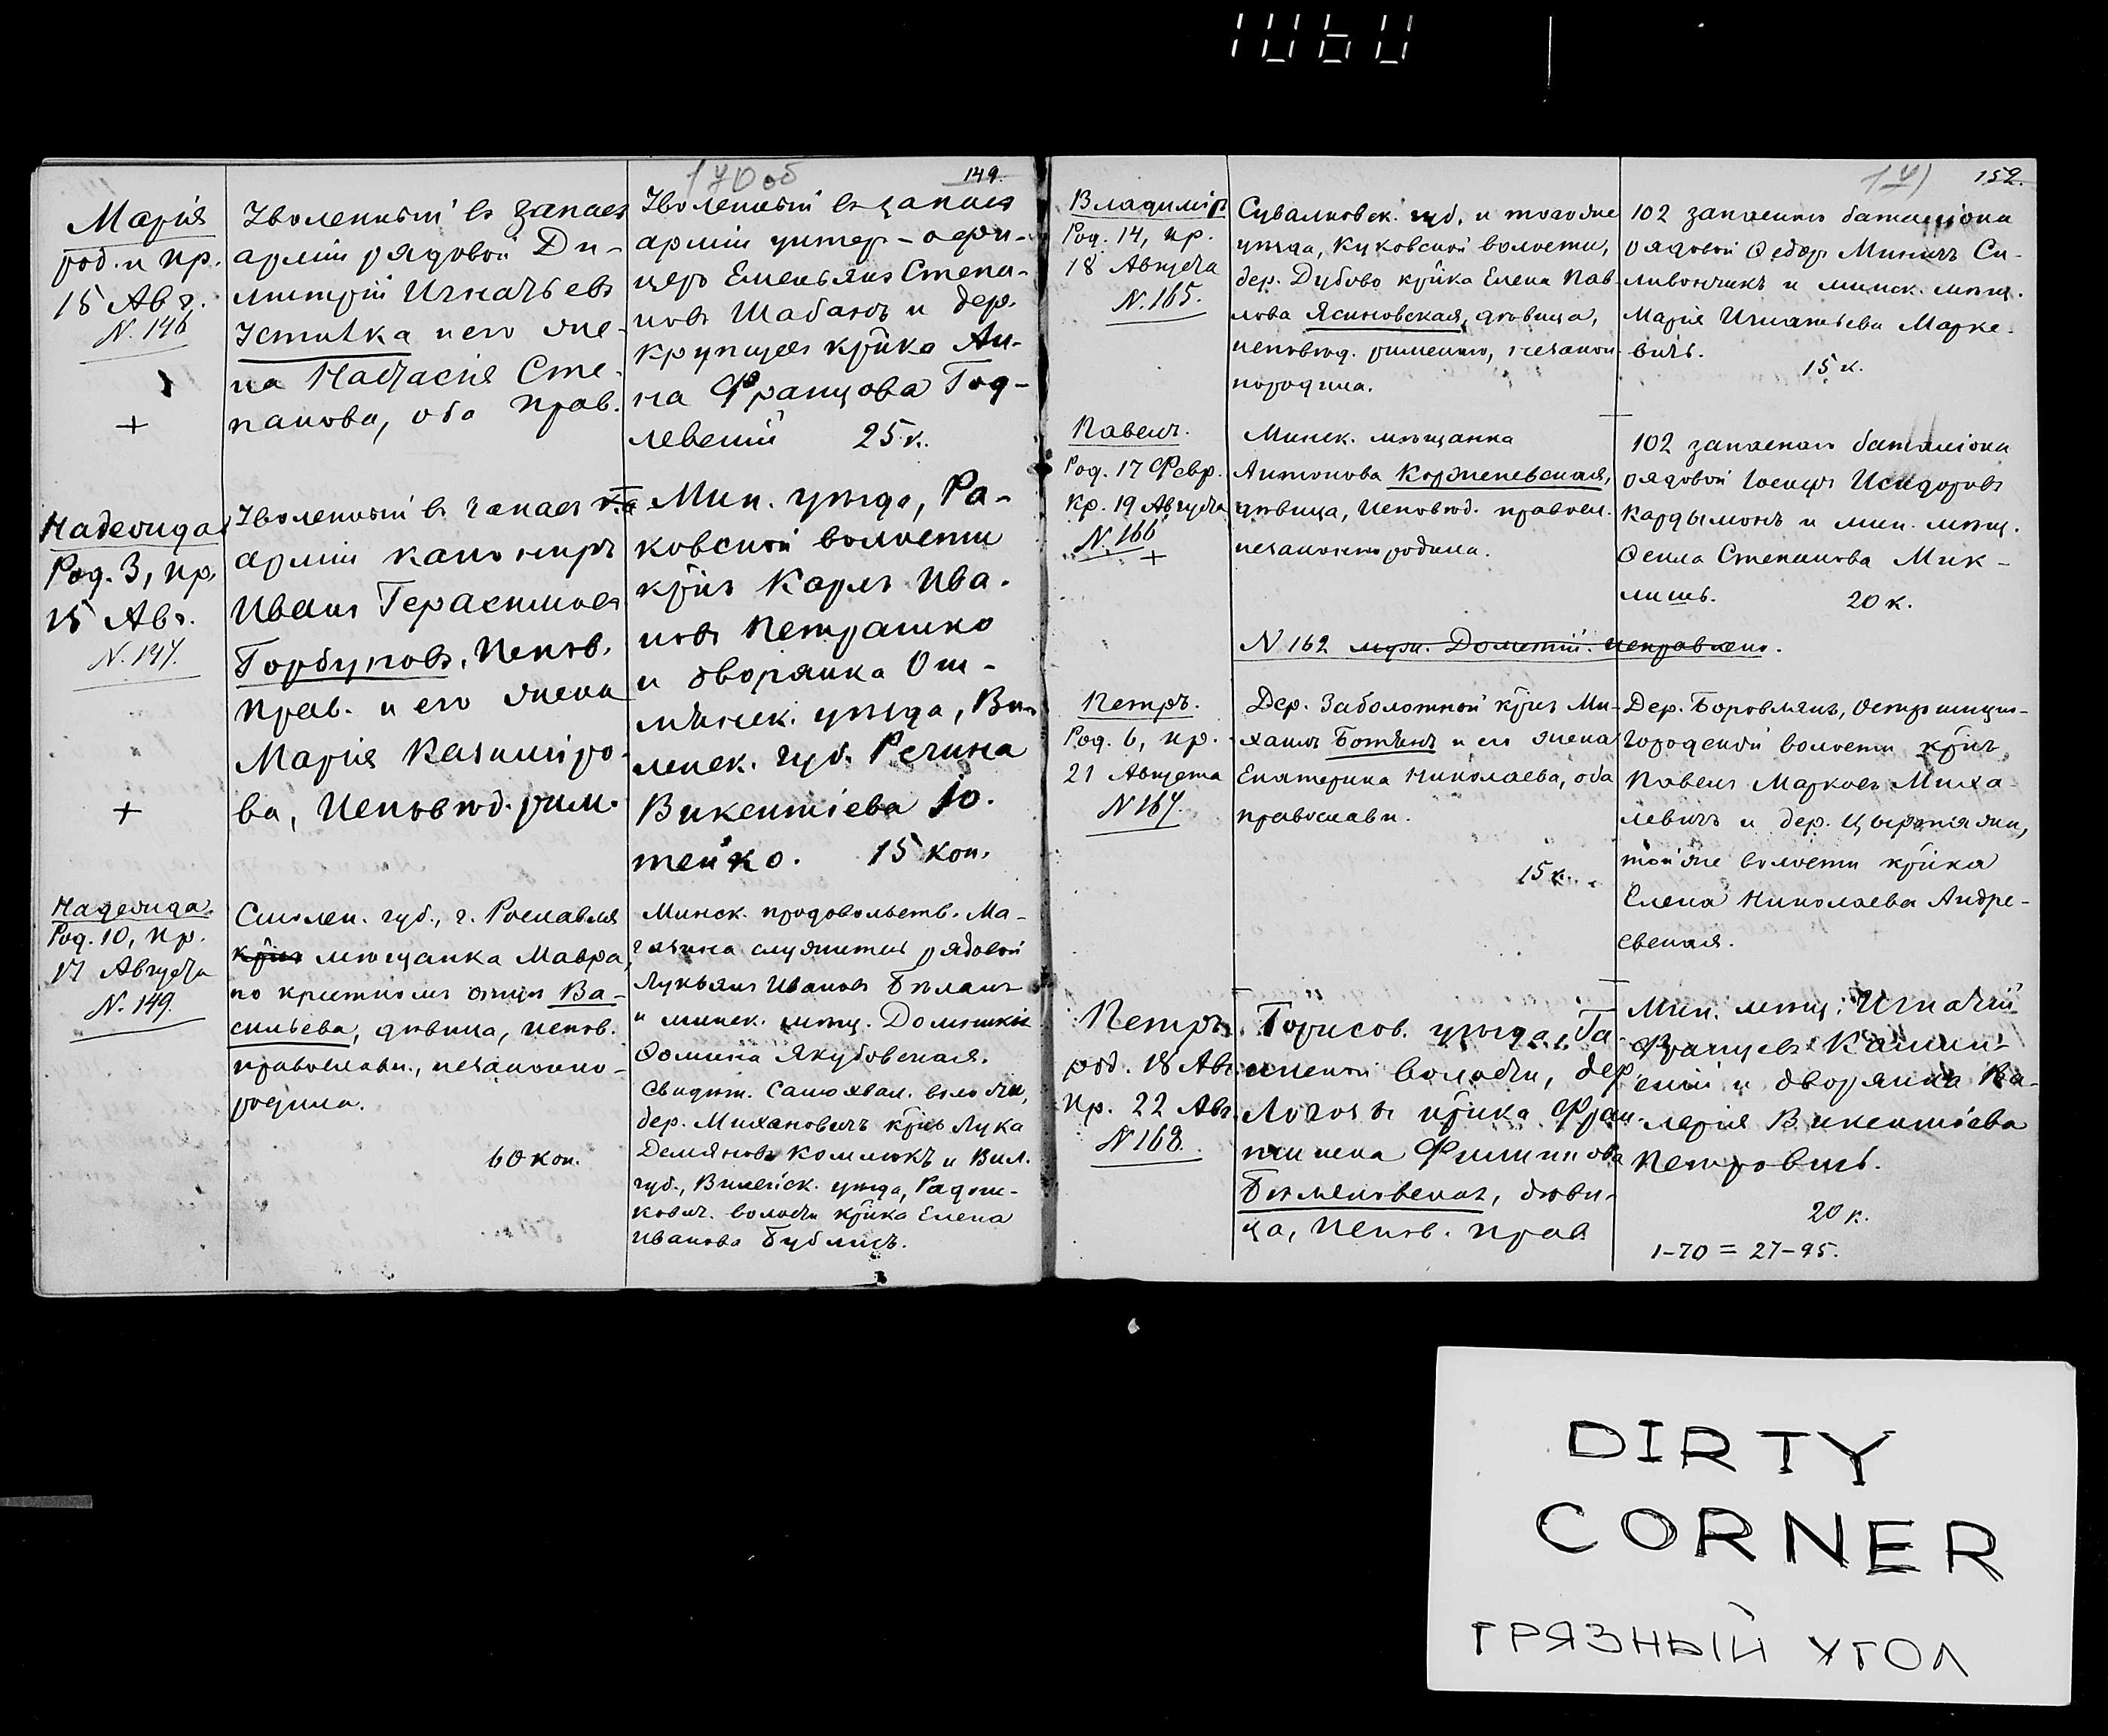 149.
Марія
род. и кр.
15 Авг.
N. 146
Уволенный въ запасъ
арміи рядовой Ди-
митрій Игнатьевъ
и его же-
на Настасія Сте-
панова, оба прав.
Уволенный въ запасъ
арміи унтер-офи-
церъ Емельянъ Степа-
новъ Шабанъ и дер.
Крупцевъ кр̃нка Ан-
на Францова Год-
левскій 25 к.
Надежда
Род. 3, кр.
15 Авг.
N. 147.
Уволенный въ запасъ
арміи канониръ
Иванъ Герасимовъ
Горбуновъ, испов.
прав. и его жена
Марія Казиміро-
ва, исповѣд. рим.
Мин. уѣзда, Ра-
ковской волости
кр̃нъ Карлъ Ива-
новъ Петрашко
и дворянка Ош-
мянск. уѣзда, Ви-
ленск. губ. Регина
Викентіева Ю-
тейко. 15 коп.
Надежда.
Род. 10, кр.
17 Августа
N. 149.
Смолен. губ., г. Рославля
кр̃нъ мѣщанка Мавра,
по крестномъ отцѣ Ва-
сильева, дѣвица, испов.
православн., незаконно-
родила.
60 коп.
Минск. продовольств. Ма-
газина служитель рядовой
Лукьянъ Ивановъ Бѣланъ
и минск. мѣщ. Домникія
Ѳомина Якубовская.
Свидѣт. Самохвал. волости,
дер. Михановичъ кр̃нъ Лука
Демяновъ Комлюкъ и Вил.
губ., Вилейск. уѣзда, Радош-
кович. волости кр̃нка Елена
Иванова Бублисъ.
152.
Владиміръ
Род. 14, кр.
18 Августа
N. 165.
Сувалковск. губ. и тогоже
уѣзда, Куковской волости,
дер. Дубово кр̃нка Елена Пав-
лова Ясиновская, дѣвица,
исповѣд. римскаго, незакон-
нородила.
102 запаснаго баталіона
рядовой Ѳедоръ Мининъ Си-
ливончикъ и минск. мѣщ.
Марія Игнатьева Марке-
вичъ.
15 к.
Павелъ.
Род. 17 Февр.
Кр. 19 Августа
N. 166
Минск. мѣщанка
Антонова Корженевская,
дѣвица, исповѣд. правосл.
незаконнородила.
102 запаснаго баталіона
рядовой Іосифъ Исидоровъ
Кардымонъ и мин. мѣщ.
Ѳекла Степанова Мик-
лишъ.
20 к.
N 162 муж. Дометій. исправлено.
Петръ.
Род. 6, кр.
21 Августа
N 167.
Дер. Заболотной кр̃нъ Ми-
хаилъ Ботянъ и его жена
Екатерина Николаева, оба
православн.
15 к.
Дер. Боровлянъ, Острошицко-
городской волости кр̃нъ
Павелъ Марковъ Миха-
левичъ и дер.
тойже волости кр̃нка
Елена Николаева Андре-
евская.
Петръ.
род. 18 Авг.
Кр. 22 Авг.
N 168.
Борисов. уѣзда, Га-
инской волости, дер.
Логозы кр̃нка Фран-
тишка Филиппова
дѣви-
ца, испов. прав
Мин. мѣщ. Игнатій
Францевъ Камин-
скій и дворянка Ва-
лерія Викентіева
Петровичъ.
20 к.
1-70 = 27-95.
DIRTY
CORNER
ГРЯЗНЫЙ УГОЛ